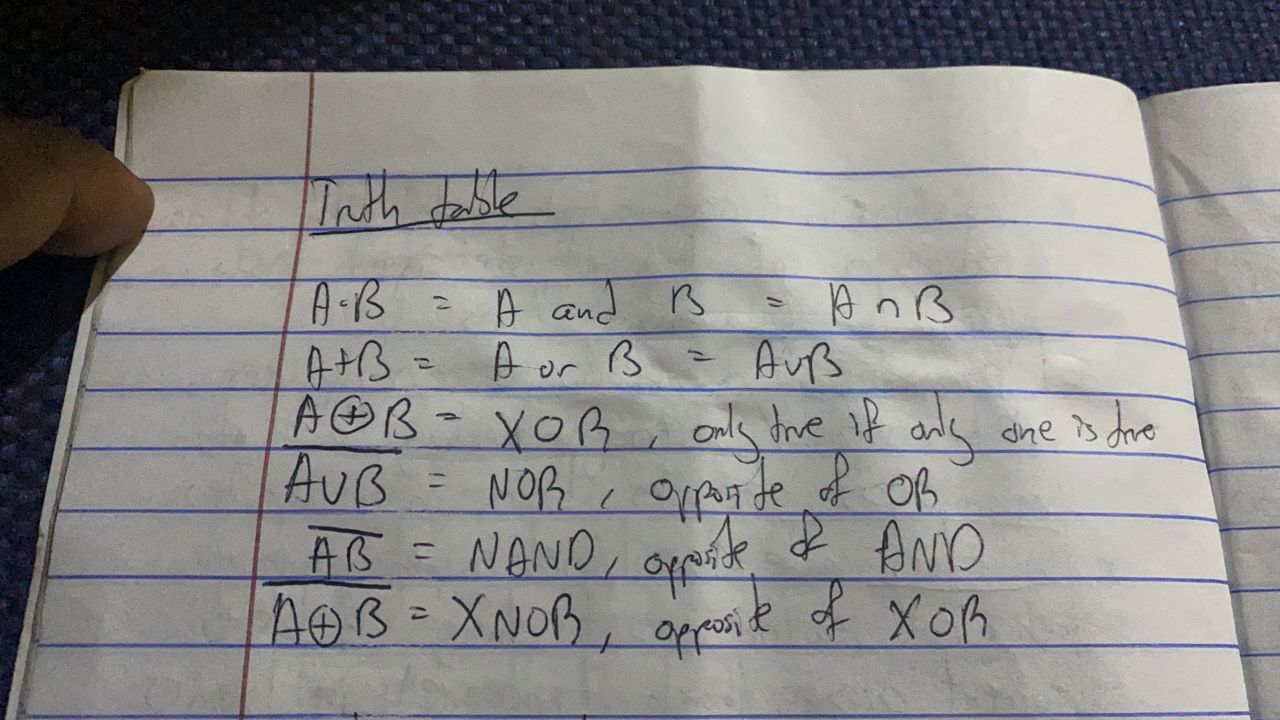 Truth table
A·B = A and B = A∩B
A+B = A or B = A∪B
A⊕B = XOR, only true if only one is true
A̅∪̅B̅ = NOR, opposite of OR
A̅B̅ = NAND, opposite of AND
A̅⊕̅B̅ = XNOR, opposite of XOR